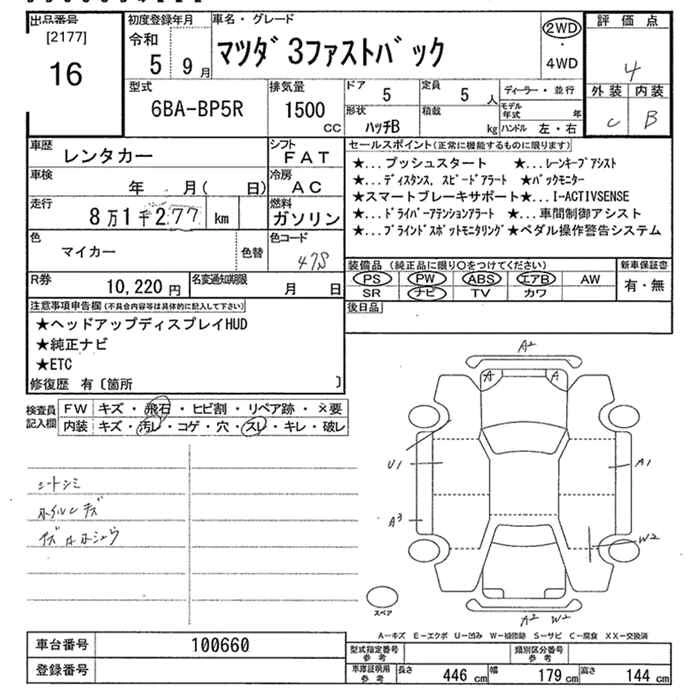 出品番号
[2177]
16
初度登録年月
令和
5 9月
車名・グレード
マツダ3ファストバック
2WD
・
4WD
評価点
4
外装 内装
C B
型式
6BA-BP5R
排気量
1500
cc
ドア
5
定員
5 人
形状
ハッチB
積載
kg
ディーラー・並行
モデル年式 年
ハンドル 左・右
車歴
レンタカー
シフト
FAT
車検
年 月( 日)
冷房
AC
走行
8万1千277 km
燃料
ガソリン
色
マイカー
色替
色コード
47S
R券
10,220 円
名変通知期限
月 日
セールスポイント(正常に機能するものに限ります)
★...プッシュスタート ★...レーンキープアシスト
★...ディスタンス、スピードアラート ★バックモニター
★スマートブレーキサポート★...I-ACTIVSENSE
★...ドライバーアテンションアラート ★...車間制御アシスト
★...ブラインドスポットモニタリング★ペダル操作警告システム
装備品(純正品に限り○をつけてください)
PS PW ABS エアB AW
SR ナビ TV カワ
新車保証書
有・無
後日品
注意事項申告欄(不具合内容等は具体的に記入して下さい)
★ヘッドアップディスプレイHUD
★純正ナビ
★ETC
修復歴 有〔箇所 〕
検査員
記入欄
FW キズ・飛石・ヒビ割・リペア跡・×要
内装 キズ・汚レ・コゲ・穴・スレ・キレ・破レ
シートシミ
ホイルキズ
キズAホシュウ
A2
A A
U1
A1
A3
W2
A2 W2
スペア
A―キズ E―エクボ U―凹み W―補修跡 S―サビ C―腐食 XX―交換済
車台番号
100660
登録番号
型式指定番号
参考
類別区分番号
参考
車庫証明用
参考
長さ 446 cm 幅 179 cm 高さ 144 cm